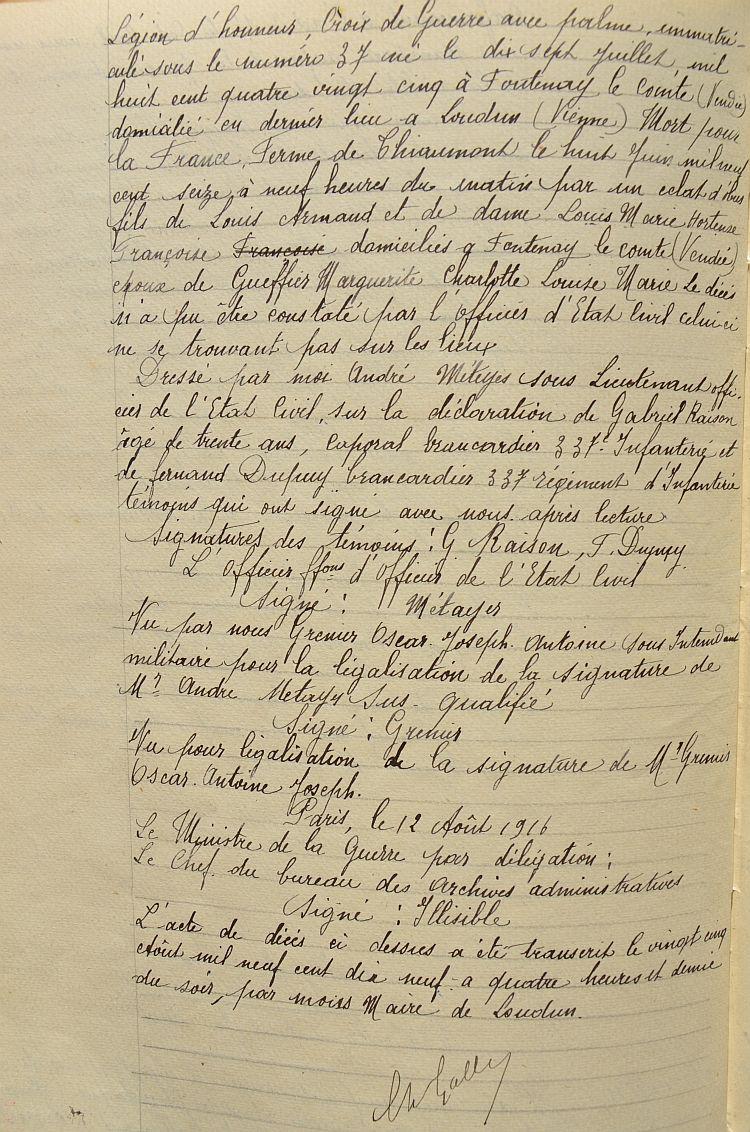 Légion d'honneur, Croix de Guerre avec palme, immatri-
culé sous le numéro 37 né le dix sept Juillet mil
huit cent quatre vingt cinq à Fontenay le comte (Vendée)
domicilié en dernier lieu a Loudun (Vienne) Mort pour
la France, Ferme de Thiaumont le huit Juin mil neuf
cent seize à neuf heures du matin par un eclat d'obus
fils de Louis Armand et de dame Louis Marie Hortense
Françoise Françoise domiciliés a Fontenay le comte (Vendée)
epoux de Gueffier Marguerite Charlotte Louise Marie Le décès
n'a pu être constaté par l'Officier d'Etat Civil celui ci
ne se trouvant pas sur les lieux
Dressé par moi André Méteyes sous Lieutenant offi-
cier de l'Etat Civil, sur la déclaration de Gabriel Raison
âgé de trente ans, Caporal brancardier 337e Infanterie et
de fernand Dupuy brancardier 337 régiment d'Infanterie
témoins qui ont signé avec nous après lecture
Signatures des témoins: G Raison, F. Dupuy.
L'Officier ffons d'Officier de l'Etat Civil
Signé: Métayer
Vu par nous Grenier Oscar. Joseph. Antoine Sous Intendant
militaire pour la légalisation de la signature de
Mr Andre Metayer sus-qualifié
Signé: Grenier
Vu pour légalisation de la signature de Mr Grenier
Oscar. Antoine Joseph.
Paris, le 12 Août 1916
Le Ministre de la Guerre par délégation:
Le Chef du bureau des Archives administratives
Signé: Illisible
L'acte de décès ci dessus a été transcrit le vingt cinq
Août mil neuf cent dix neuf a quatre heures et demie
du soir, par moins Maire de Loudun.